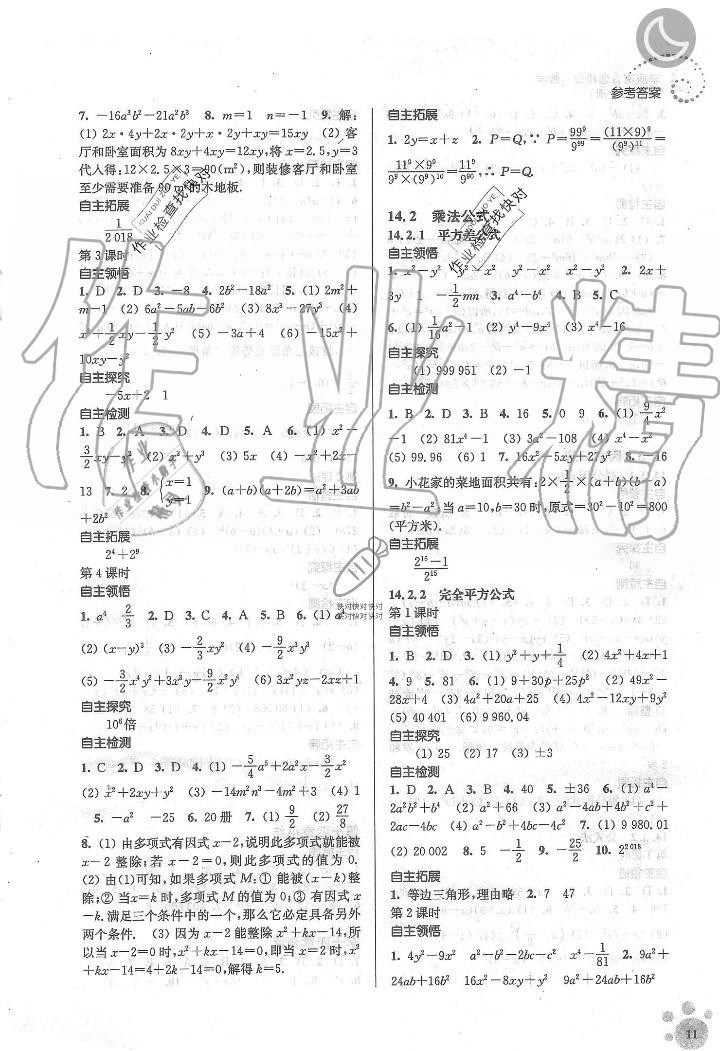 参考答案
7. −16a³b²−21a²b³　8. m=1　n=−1　9. 解:
(1) 2x·4y+2x·2y+x·2y+xy=15xy　(2) 客
厅和卧室面积为 8xy+4xy=12xy,将 x=2.5, y=3
代入得:12×2.5×3=90(m²),则装修客厅和卧室
至少需要准备 90 m²的木地板.
自主拓展
1/2 018
第 3 课时
自主领悟
1. D　2. D　3. −8　4. 2b²−18a²　5. (1) 2m²+
m−1　(2) 6a²−5ab−6b²　(3) 8x³−27y³　(4)
x²+1/2xy−1/2y²　(5) −3a+4　(6) −15x²+
10xy−y²
自主探究
−5x+2　1
自主检测
1. B　2. A　3. D　4. D　5. A　6. (1) x²−
3/2xy−y²　(2) x³+y³　(3) 5x　(4) −x²+2x−
13　7. 2　8. {x=1 y=1　9. (a+b)(a+2b)=a²+3ab
+2b²
自主拓展
2⁴+2⁹
第 4 课时
自主领悟
1. a⁴　2/3　2. D　3. C　4. B　5. B　6. (1) a
(2) (x−y)²　(3) −2/3xy²　(4) −9/2x³y²
(5) −3/2x⁴y²+3x³y−9/2x²y²　(6) 3x²yz−2xz+1
自主探究
10⁶倍
自主检测
1. C　2. D　3. D　4. (1) −5/4a³+2a²x−3/2x²
(2) x²+2xy+y²　(3) −14m²n³−4m²+3　(4) 1
5. −a²　−25　6. 20 册　7. (1) 9/2　(2) 27/8
8. (1) 由多项式有因式 x−2,说明此多项式就能被
x−2 整除;若 x=2,则此多项式的值为 0.
(2) 由(1)可知,如果多项式 M:① 能被(x−k)整
除;② 当 x=k 时,多项式 M 的值为 0;③ 有因式 x
−k.满足三个条件中的一个,那么它必定具备另外
两个条件.　(3) 因为 x−2 能整除 x²+kx−14,所
以当 x=2 时,x²+kx−14=0,即当 x=2 时,x²
+kx−14=4+2k−14=0,解得 k=5.
自主拓展
1. 2y=x+z　2. P=Q,∵ P=99⁹/9⁹⁹=(11×9)⁹/(9⁹)¹¹=
11⁹×9⁹/9⁹×(9⁹)¹⁰=11⁹/9⁹⁰,∴ P=Q.
14.2　乘法公式
14.2.1　平方差公式
自主领悟
1. x²−y²　y²−x²　x²−y²　x²−y²　2. 2x+
3y　1　−1/2mn　3. a⁴−b⁴　4. B　5. C
6. (1) 1/16a²−1　(2) y⁴−9x⁴　(3) x⁴−16
自主探究
(1) 999 951　(2) −1
自主检测
1. B　2. D　3. B　4. 16　5. 0　9　6. (1) 9/4x²
−1　(2) 81x⁴−1　(3) 3a²−108　(4) x⁴−x²
(5) 99.96　(6) 1　7. 16x²+5xy+27y²　8. −16
9. 小花家的菜地面积共有:2×1/2×(a+b)(b−a)
=b²−a².当 a=10,b=30 时,原式=30²−10²=800
(平方米).
自主拓展
2¹⁶−1/2¹⁵
14.2.2　完全平方公式
第 1 课时
自主领悟
1. B　2. D　3. (1) y²+y+1/4　(2) 4x²+4x+1
4. 9　5. 81　6. (1) 9+30p+25p²　(2) 49x²−
28x+4　(3) 4a²+20a+25　(4) 4x²−12xy+9y²
(5) 40 401　(6) 9 960.04
自主探究
(1) 25　(2) 17　(3) ±3
自主检测
1. D　2. A　3. B　4. 40　5. ±36　6. (1) a⁴−
2a²b²+b⁴　(2) a²+66　(3) a²−4ab+4b²+c²+
2ac−4bc　(4) a²−b²+4bc−4c²　7. (1) 9 980.01
(2) 20 002　8. 5　−1/2　9. −25/2　10. 2²⁰¹⁸
自主拓展
1. 等边三角形,理由略　2. 7　47
第 2 课时
自主领悟
1. 4y²−9x²　a²−b²−2bc−c²　x⁴−1/81　2. 9a²+
24ab+16b²　16x²−8xy+y²　9a²+24ab+16b²
11
作业精灵
作业检查找快对
KUAI DUI ZUO YE
作业检查找快对
快对快对快对
快对快对快对